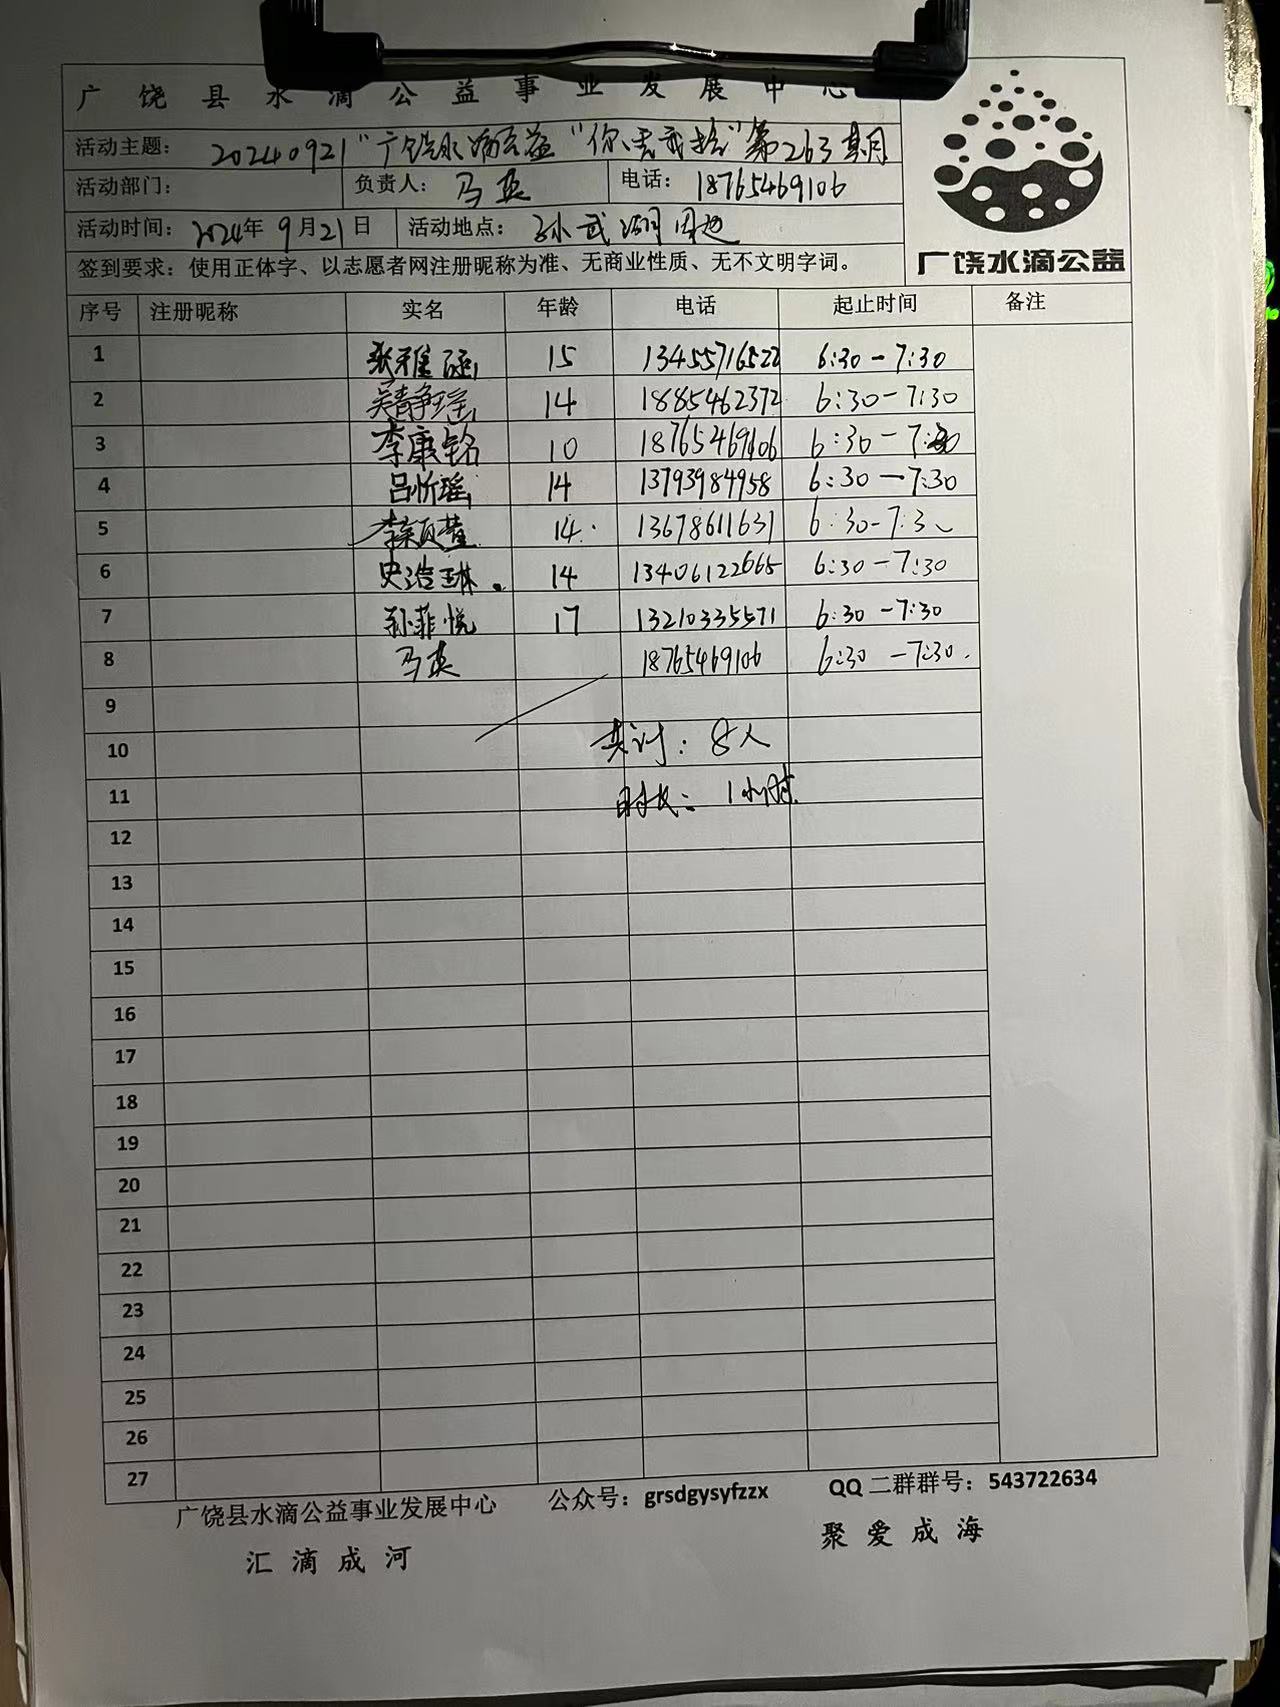 广饶县水滴公益事业发展中心
活动主题： 20240921"广饶水滴公益"你丢我捡"第263期
活动部门： 负责人：马英 电话：18765469106
活动时间：2024年9月21日 活动地点：孙武湖周边
签到要求：使用正体字、以志愿者网注册昵称为准、无商业性质、无不文明字词。
广饶水滴公益
序号 注册昵称 实名 年龄 电话 起止时间 备注
1 张雅涵 15 13455716522 6:30-7:30
2 吴静瑶 14 1885462372 6:30-7:30
3 李康铭 10 18765469106 6:30-7:30
4 吕忻瑶 14 13793984958 6:30-7:30
5 14. 13678611631 6:30-7:3
6 史浩琳 14 13406122665 6:30-7:30
7 孙菲悦 17 13210335571 6:30-7:30
8 马英 18765469106 6:30-7:30.
9
10 共计：8人
11 时长：1小时.
12
13
14
15
16
17
18
19
20
21
22
23
24
25
26
27
广饶县水滴公益事业发展中心 公众号：grsdgysyfzzx QQ二群群号：543722634
汇滴成河 聚爱成海